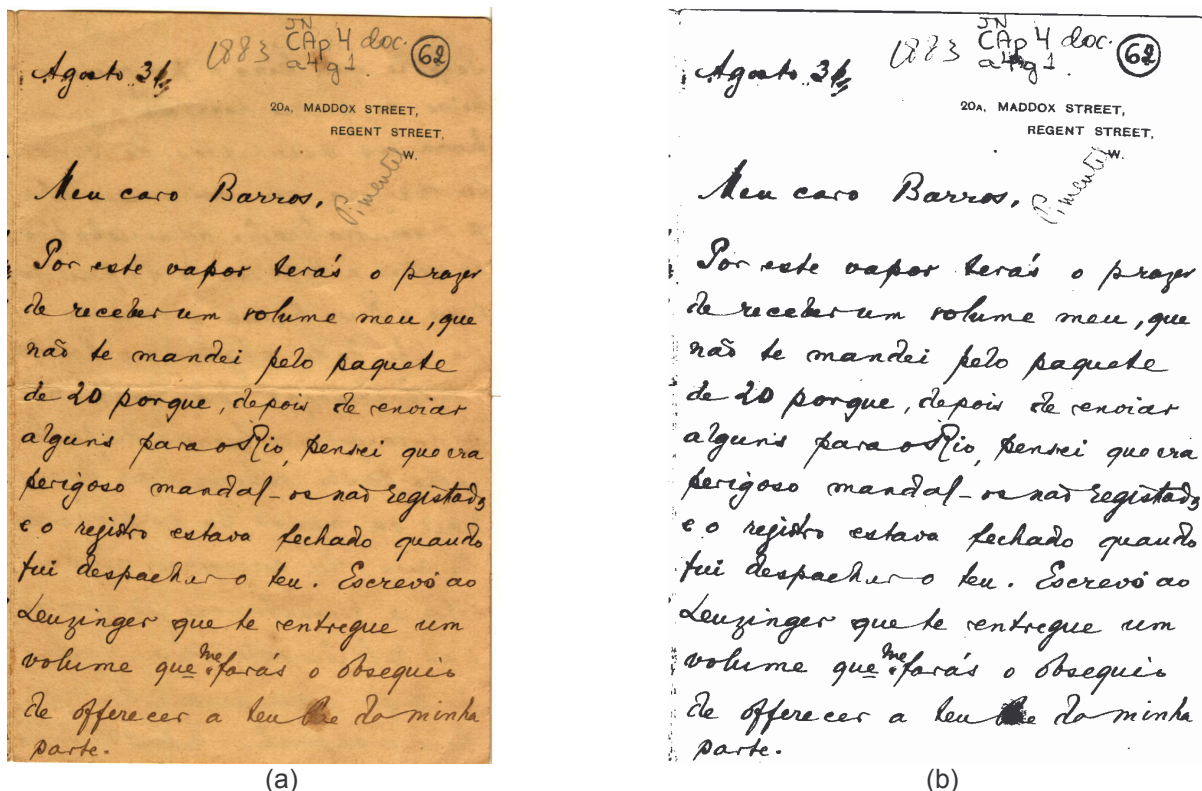 1883 JN
CAp 4 doc. 62
a4 g1
Agosto 31
20A, MADDOX STREET,
REGENT STREET,
W.
Pimentel
Meu caro Barros,
Por este vapor terás o prazer
de receber um volume meu, que
não te mandei pelo paquete
de 20 porque, depois de enviar
alguns para o Rio, pensei que era
perigoso mandal-os não registado
e o registro estava fechado quando
fui despachar o teu. Escrevo ao
Leuzinger que te entregue um
volume que me farás o obsequio
de offerecer a teu da minha
parte.
(a)
1883 JN
CAp 4 doc. 62
a4 g1
Agosto 31
20A, MADDOX STREET,
REGENT STREET,
W.
Pimentel
Meu caro Barros,
Por este vapor terás o prazer
de receber um volume meu, que
não te mandei pelo paquete
de 20 porque, depois de enviar
alguns para o Rio, pensei que era
perigoso mandal-os não registado
e o registro estava fechado quando
fui despachar o teu. Escrevo ao
Leuzinger que te entregue um
volume que me farás o obsequio
de offerecer a teu da minha
parte.
(b)